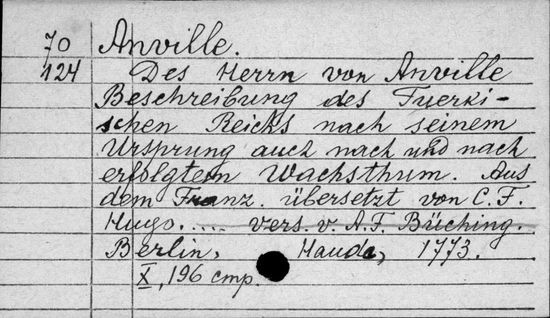 70 Anville.
124 Des Herrn von Anville
Beschreibung des Tuerki-
schen Reicks nach seinem
Ursprung auch nach und nach
erfolgtem Wachsthum. Aus
dem Franz. übersetzt von C. F.
Hugo..... vers. v. A.F. Büching.
Berlin, Haude, 1773.
X, 196 стр.